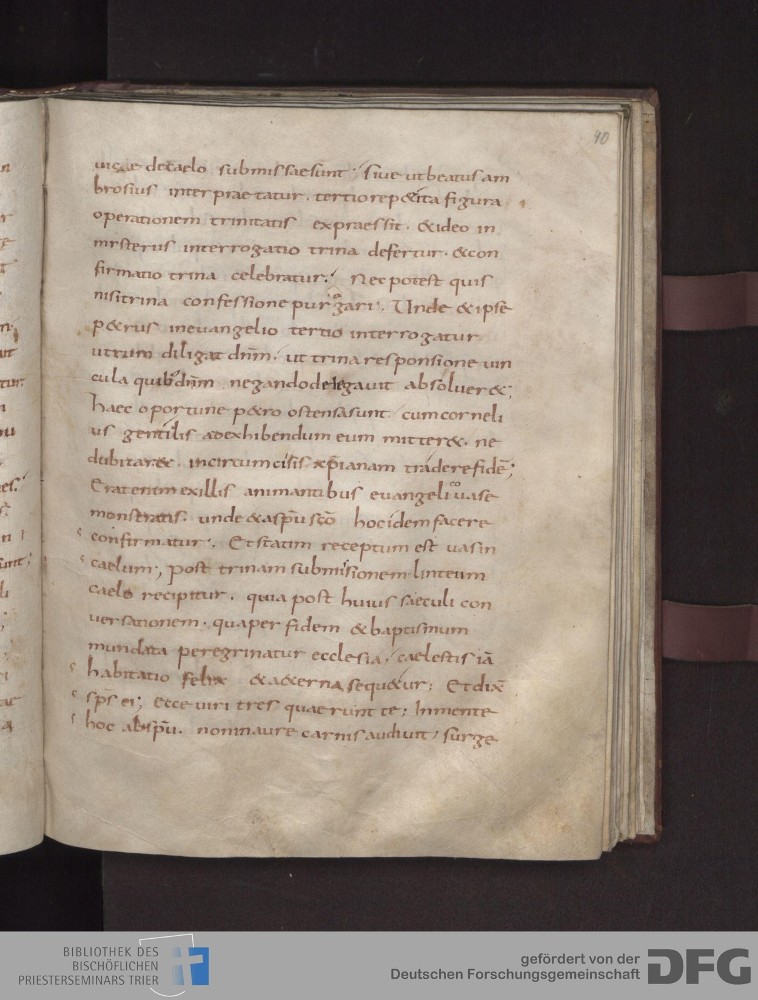 40
uicae decaelo submissaesunt; siue utbeatus am
brosius interpraetatur. tertiorep&ita figura
operationem trinitatis expraessit. &ideo in
misteriis interrogatio trina defertur. &con
firmatio trina celebratur; Necpotest quis
nisitrina confessione purgari. Unde &ipse
p&rus ineuangelio tertio interrogatur
utrum diligat dnm. ut trina responsione uin
cula quib dnm negando delegauit absoluer&;
haec oportune p&ro ostensasunt. cum corneli
us gentilis adexhibendum eum mitter&. ne
dubitar&. incircumcisis xpianam traderefidē;
Erat enim exillis animantibus euangelicouase
monstratis. unde &aspu sco hocidem facere
confirmatur. Et statim receptum est uas in
caelum; post trinam submisionem linteum
caelo recipitur. quia post huius saeculi con
uersationem. quaper fidem &baptismum
mundata peregrinatur ecclesia. caelestis iā
habitatio felix &a&erna sequ&ur; Et dix
sps ei; ecce uiri tres quaerunt te; Inmente
hoc abspu. nonin aure carnis audiuit; surge
BIBLIOTHEK DES
BISCHÖFLICHEN
PRIESTERSEMINARS TRIER
gefördert von der
Deutschen Forschungsgemeinschaft
DFG